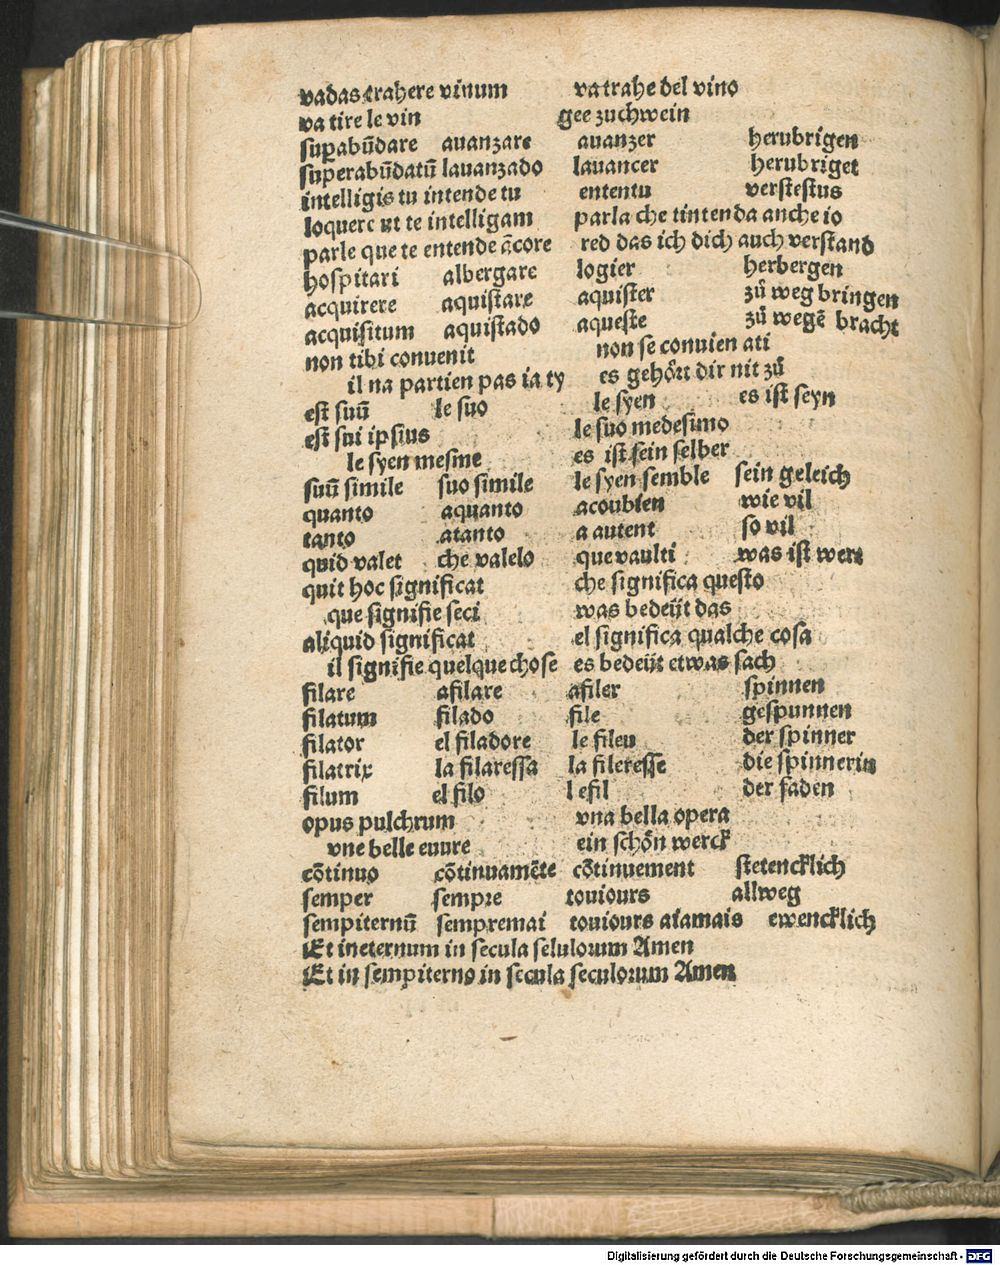 vadas trahere vinum va trahe del vino
va tire le vin gee zu chwein
supabūdare auanzare auanzer herubrigen
superabūdatū lauanzado lauancer herubriget
intelligis tu intende tu ententu verstestus
loquere ut te intelligam parla che tintenda anche io
parle que te entende ācore red das ich dich auch verstand
hospitari albergare logier herbergen
acquirere aquistare aquister zů weg bringen
acquisitum aquistado aqueste zů wegē bracht
non tibi convenit non se convien ati
il na partien pas ia ty es gehört dir nit zů
est suū le suo le syen es ist seyn
est sui ipsius le suo medesimo
le syen mesme es ist sein selber
suū simile suo simile le syen semble sein geleich
quanto aquanto acoubien wie vil
tanto atanto a autent so vil
quid valet che valelo que vaulti was ist wert
quit hoc significat che significa questo
que signifie seci was bedeüt das
aliquid significat el significa qualche cosa
il signifie quelque chose es bedeüt etwas sach
filare afilare afiler spinnen
filatum filado file gespunnen
filator el filadore le fileu der spinner
filatrix la filaressa la fileresse die spinnerin
filum el filo l efil der faden
opus pulchrum vna bella opera
vne belle euure ein schön werck
cōtinuo cōtinuamēte cōtinuement stetencklich
semper sempre touiours allweg
sempiternū sempremai touiours aiamais ewencklich
Et ineternum in secula selulorum Amen
Et in sempiterno in secula seculorum Amen
Digitalisierung gefördert durch die Deutsche Forschungsgemeinschaft - DFG